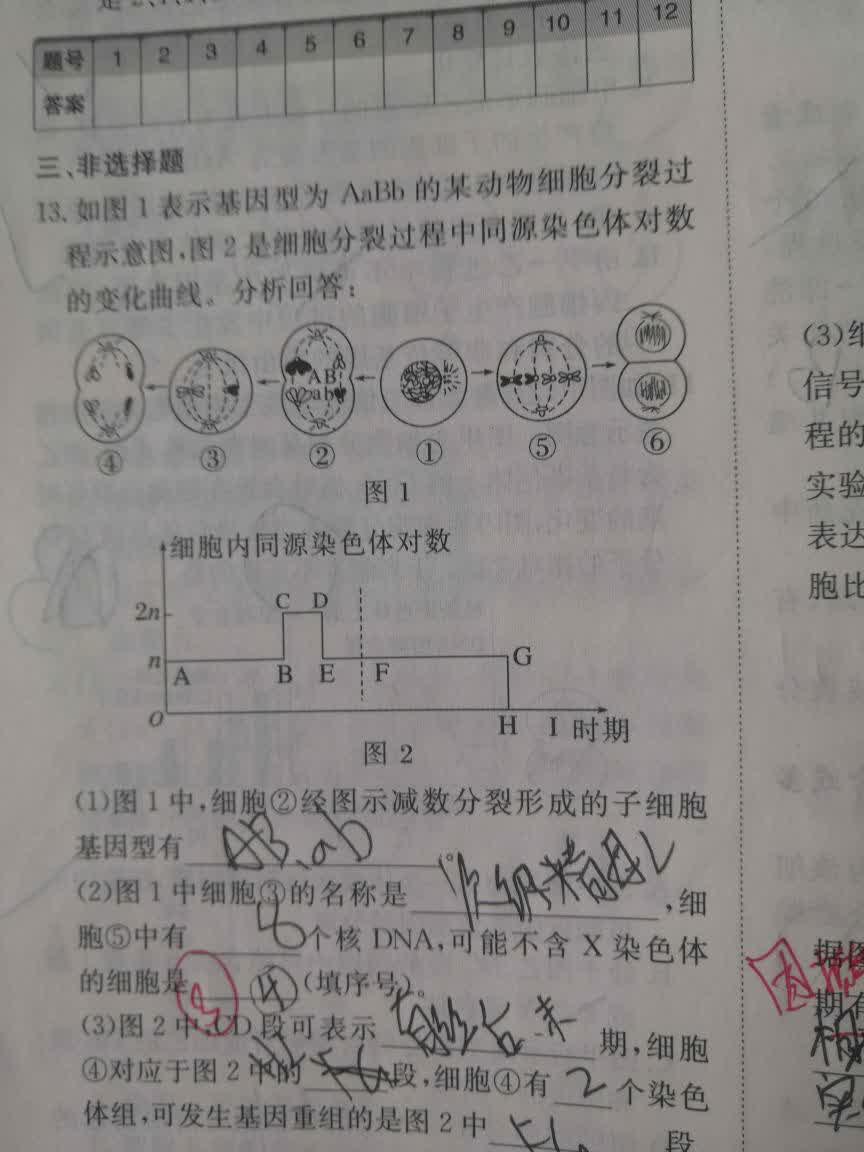 题号 1 2 3 4 5 6 7 8 9 10 11 12
答案
三、非选择题
13.如图1表示基因型为AaBb的某动物细胞分裂过
程示意图,图2是细胞分裂过程中同源染色体对数
的变化曲线。分析回答:
AB
ab
④ ③ ② ① ⑤ ⑥
图1
细胞内同源染色体对数
2n
C D
n
A B E F G
O
H I 时期
图2
(1)图1中,细胞②经图示减数分裂形成的子细胞
基因型有 AB、ab 。
(2)图1中细胞③的名称是 次级精母 ,细
胞⑤中有 8 个核DNA,可能不含X染色体
的细胞是 ③ ④ (填序号)。
(3)图2中,CD段可表示 有丝后、末 期,细胞
④对应于图2中的 段,细胞④有 2 个染色
体组,可发生基因重组的是图2中 段
(3)细
信号
程的
实验
表达
胞比
据图
期有